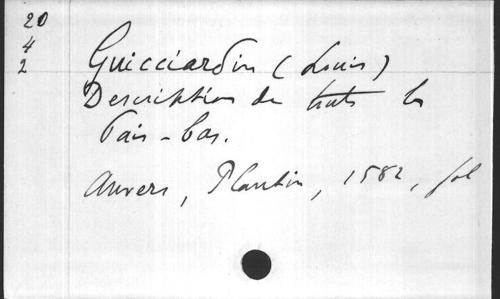 20
4
2
Guicciardin (Louis)
Description de touts les
Pais-bas.
Anvers, Plantin, 1582, fol